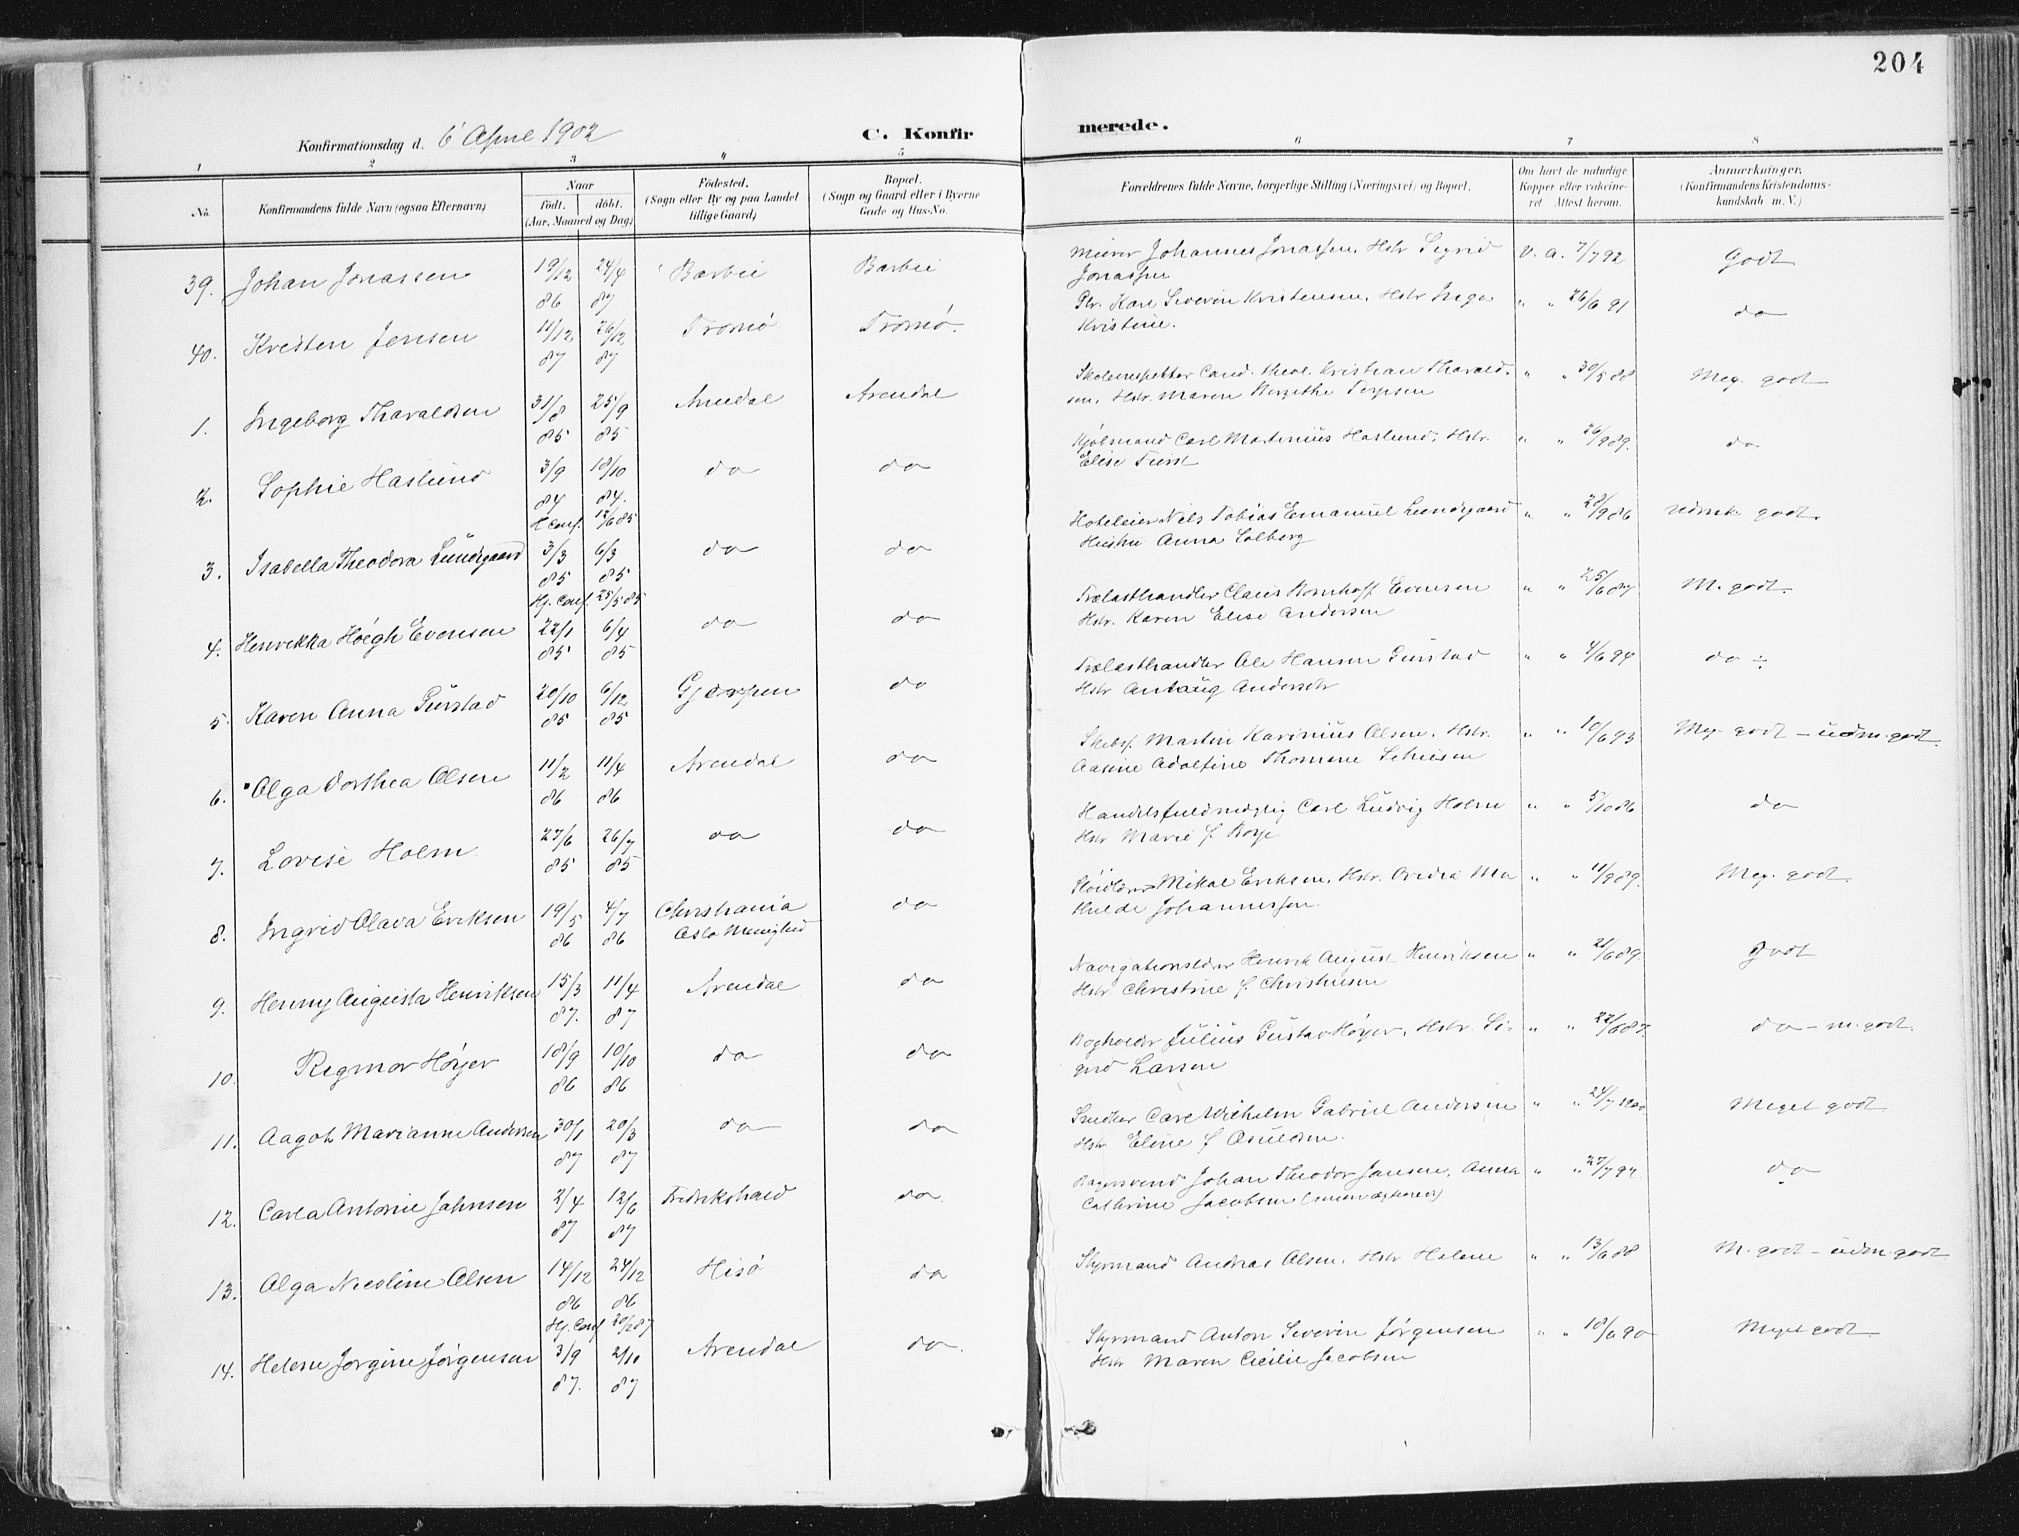 204
Konfirmationsdag d. 6 April 1902
C. Konfirmerede.
1 2 3 4 5 6 7 8
No.
Konfirmandens fulde Navn (ogsaa Efternavn)
Naar
født. døbt.
(Aar, Maaned og Dag)
Fødested.
(Sogn eller By og paa Landet
tillige Gaard)
Bopæl.
(Sogn og Gaard eller i Byerne
Gade og Hus-No.
Forældrenes fulde Navne, borgerlige Stilling (Næringsvei) og Bopæl.
Om havt de naturlige
Kopper eller vaccine-
ret Attest herom.
Anmærkninger.
(Konfirmandens Kristendoms-
kundskab m. V.)
39. Johan Jonassen 19/12 86 24/4 87 Barbu Barbu
Johannes Jonassen, Hstr Sigrid
Jonassen
v. a. 7/7 92 Godt
40. Kristen Jensen 11/12 87 26/12 87 Tromø Tromø.
Gbr. Karl Severin Kristensen, Hstr Inga
Kristine.
" " 26/6 91 do
1. Ingeborg Tharaldsen 31/8 85 25/9 85 Arendal Arendal
Skoleinspektør Cand. theol. Kristian Tharald-
sen, Hstr. Maren Birgithe Terjesen
" " 30/5 88 Meg. godt
2. Sophie Haslund 3/9 84 18/10 84. do do
H conf. 12/6 85
Kjølmand Carl Martinius Haslund, Hstr.
Elise Furst
" " 26/9 89. do
3. Isabella Theodora Lundegaard 3/3 85 6/3 85 do do
Hj. Conf. 25/5 85
Hoteleier Nels Tobias Emanuel Lundegaard
Hustru Anna Solberg
" " 28/9 86 udmrk. godt.
4. Henrikka Høegh Evensen 22/1 85 6/4 85 do do
Trælasthandler Claus Bomhoff Evensen
Hstr. Karen Elise Andersen
" " 25/6 87 M. godt.
5. Karen Anna Gurstad 20/10 85 6/12 85 Gjerpen do
Trælasthandler Ole Hansen Gurstad
Hstr Antaug Andersdtr
" " 4/6 94 do ÷
6. Olga Dorthea Olsen 11/2 86 11/4 86 Arendal do
Skibsf. Martin Karinius Olsen, Hstr.
Aasine Adolfine Thomine
" " 10/6 93 Meg. godt – udm. godt.
7. Lovise Holm 27/6 85 26/7 85 do do
Handelsfuldmægtig Carl Ludvig Holm
Hstr Marie f. Boye
" " 5/10 86 do
8. Ingrid Olava Eriksen 19/5 86 4/7 86 Christiania
Oslo Menighed do
Sløidlærer Mikal Eriksen, Hstr. Ovedia Ma
thilde Johannessen.
" " 11/9 89. Meg. godt.
9. Henny Augusta Henriksen 15/3 87. 11/4 87 Arendal do
Navigationslærer Henrik August Henriksen
Hstr. Christine f. Christensen
" " 21/6 89. godt
10. Regmor Høyer 18/9 86 10/10 86 do do
Bogholder Julius Gustav Høyer, Hstr. Si-
grid Larsen
" " 22/6 87. do – m. godt.
11. Aagot Marianne Andersen 30/1 87 20/3 87 do do
Snedker Carl Wilhelm Gabriel Andersen
Hstr Eline f Osuldsen.
" " 24/7 1900 Meget godt
12. Carla Antonie Jahnsen 2/4 87 12/6 87 Fredrikshald do.
Bagersvend Johan Theodor Jansen, Anna
Cathrine Jacobsen
" " 27/7 92 do
13. Olga Nicoline Olsen 14/12 86 24/12 86 Hisø do
Hj. Conf 20/2 87
Styrmand Andreas Olsen, Hstr Helene
" " 13/6 88 M. godt – udm godt
14. Helene Jorgine Jørgensen 3/9 87. 2/10 87 Arendal do.
Styrmand Anton Severin Jørgensen
Hstr Maren Cicilie Jacobsen
" " 18/6 90 Meget godt